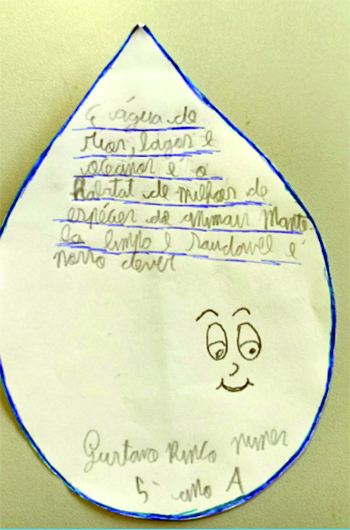 E água de
rios, lagos e
oceanos é o
habitat de milhões de
espécies de animais Mante-
la limpo e saudavel é
nosso dever
Gustavo Nunes
5º ano A